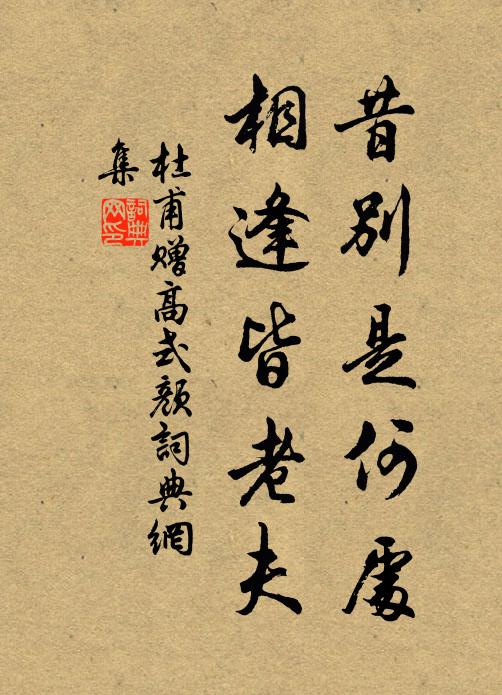 昔別是何處
相逢皆老夫
杜甫贈高式顏詞典網
集
詞典
网印